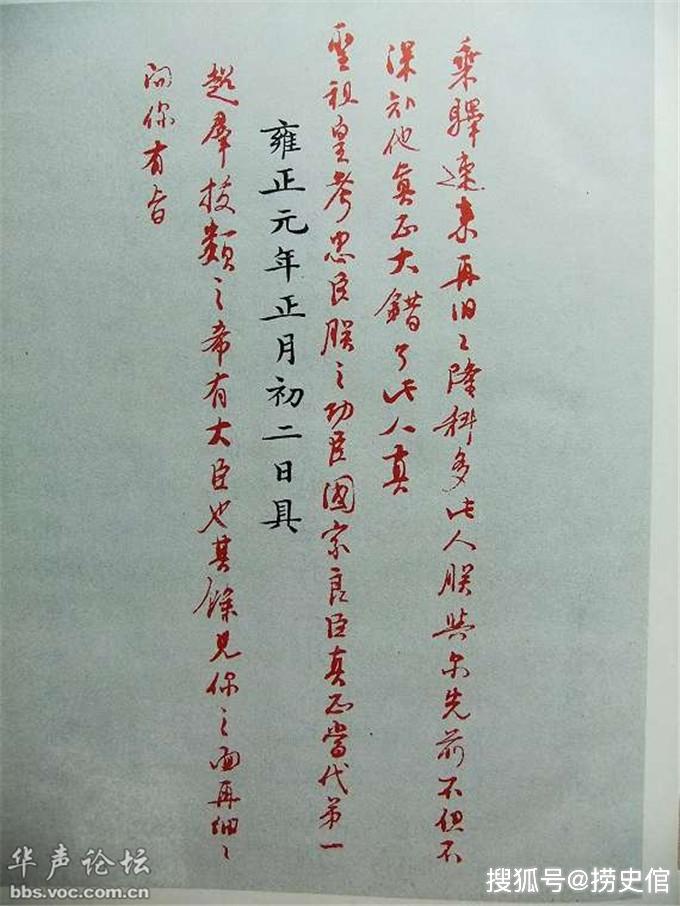 乘驛速来再旧〻隆科多此人朕與尔先前不但不
深知他真正大錯了此人真
聖祖皇考忠臣朕之功臣國家良臣真正當代第一
雍正元年正月初二日具
超羣拔類之希有大臣也其餘見你之面再細〻
问你有旨
华声论坛
bbs.voc.com.cn
搜狐号@捞史倌